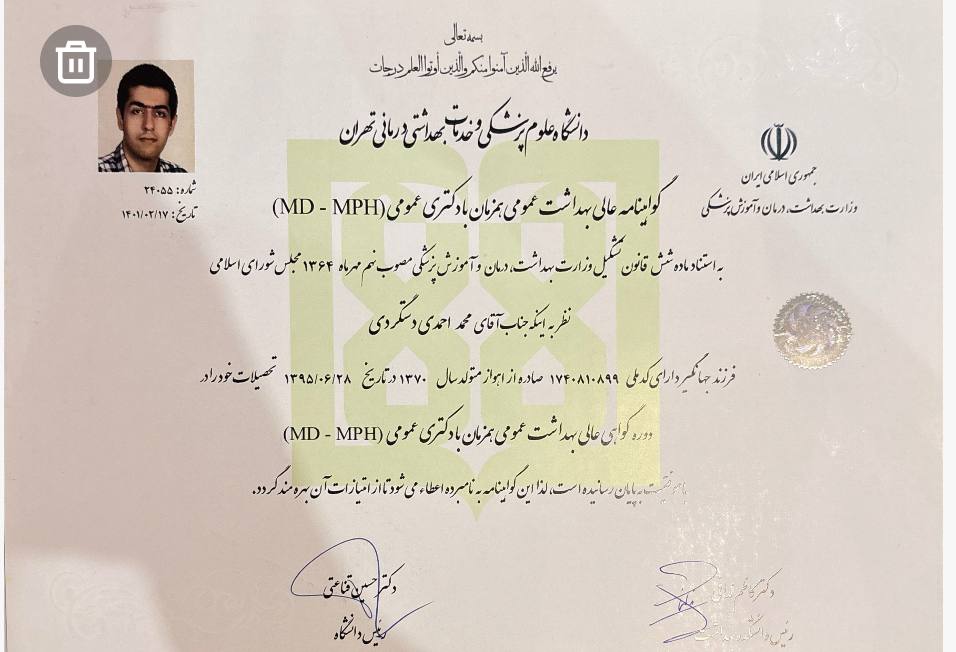 بسمه تعالی
یرفع الله الذین آمنوا منکم والذین أوتوا العلم درجات
دانشگاه علوم پزشکی و خدمات بهداشتی درمانی تهران
جمهوری اسلامی ایران
وزارت بهداشت، درمان و آموزش پزشکی
شماره: ۲۴۰۵۵
تاریخ: ۱۴۰۱/۰۲/۱۷
گواهینامه عالی بهداشت عمومی همزمان با دکتری عمومی (MD - MPH)
به استناد ماده شش قانون تشکیل وزارت بهداشت، درمان و آموزش پزشکی مصوب نهم مهرماه ۱۳۶۴ مجلس شورای اسلامی
نظر به اینکه جناب آقای محمد احمدی دستگردی
فرزند جهانگیر دارای کد ملی ۱۷۴۰۸۱۰۸۹۹ صادره از اهواز متولد سال ۱۳۷۰ در تاریخ ۱۳۹۵/۰۶/۲۸ تحصیلات خود را در
دوره گواهی عالی بهداشت عمومی همزمان با دکتری عمومی (MD - MPH)
با موفقیت به پایان رسانیده است، لذا این گواهینامه به نامبرده اعطاء می شود تا از امتیازات آن بهره مند گردد.
دکتر کاظم
رئیس دانشکده بهداشت
دکتر حسین قناعتی
رئیس دانشگاه